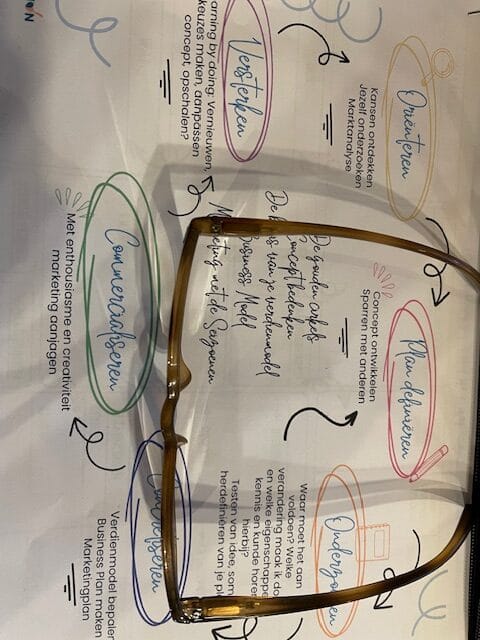 Oriënteren
Kansen ontdekken
Jezelf onderzoeken
Marktanalyse
Plan definiëren
Concept ontwikkelen
Sparren met anderen
Onderzoeken
Waar moet het aan
voldoen? Welke
verandering maak ik do
en welke eigenschappe
kennis en kunde
hierbij?
Testen van idee, som
herdefiniëren van je
De gouden
De van je verdienmodel
Business Model
met de Seizoenen
Versterken
arning by doing: Vernieuwen,
keuzes maken, aanpassen
concept, opschalen?
Commercialiseren
Met enthousiasme en creativiteit
marketing aanjagen
Verdienmodel bepalen
Business Plan maken
Marketingplan